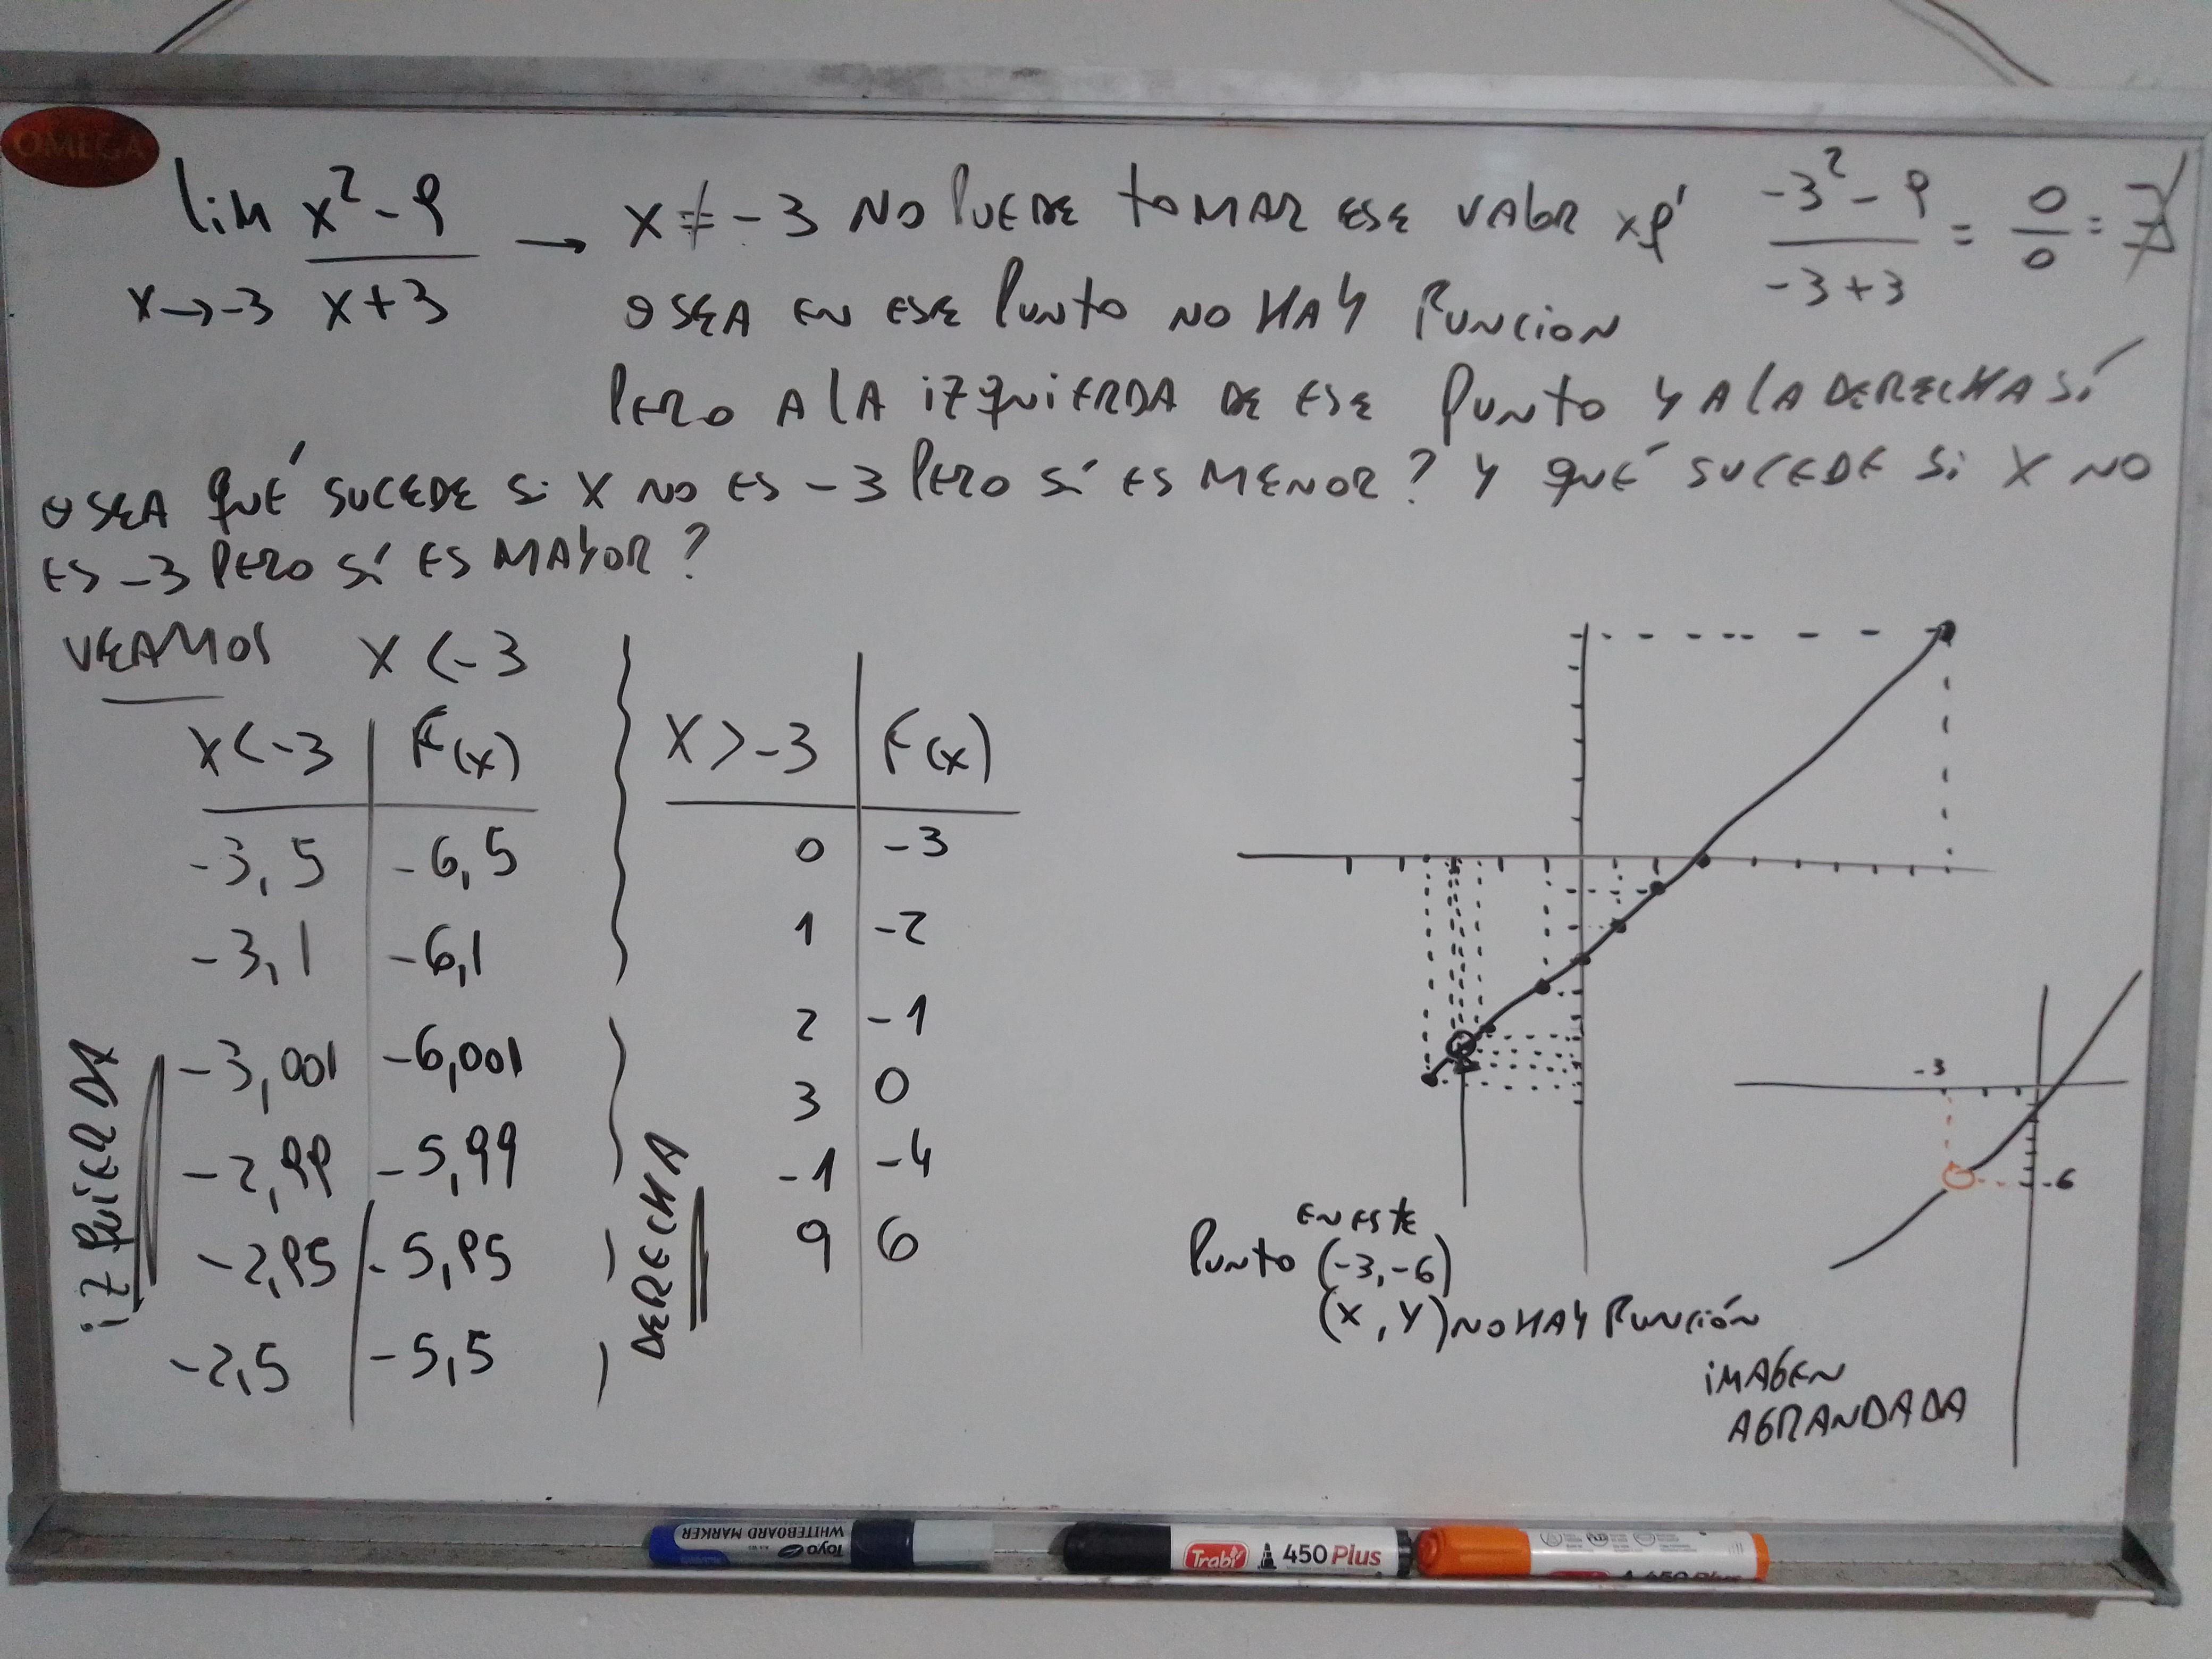 OMEGA
lim x² - 9 / x + 3 → x ≠ -3 NO PUEDE tOMAR ESE VALOR xq' -3² - 9 / -3 + 3 = 0/0 = ∄
x → -3
OSEA EN ESE PUNTO NO HAY FUNCION
PERO A LA IZQUIERDA DE ESE PUNTO Y A LA DERECHA SÍ
OSEA QUÉ SUCEDE Si X NO ES -3 PERO SÍ ES MENOR? Y QUÉ SUCEDE Si X NO
ES -3 PERO SÍ ES MAYOR?
VEAMOS X < -3
X < -3 F(x)
-3,5 -6,5
-3,1 -6,1
-3,001 -6,001
-2,99 -5,99
-2,95 -5,95
-2,5 -5,5
iZQUiERDA
X > -3 F(x)
0 -3
1 -2
2 -1
3 0
-1 -4
9 6
DERECHA
EN ESTE
PUNTO (-3,-6)
(X, Y) NO HAY FUNCIÓN
-3
-6
iMAGEN
AGRANDADA
Toyo
WHITEBOARD MARKER
Trabi 450 Plus